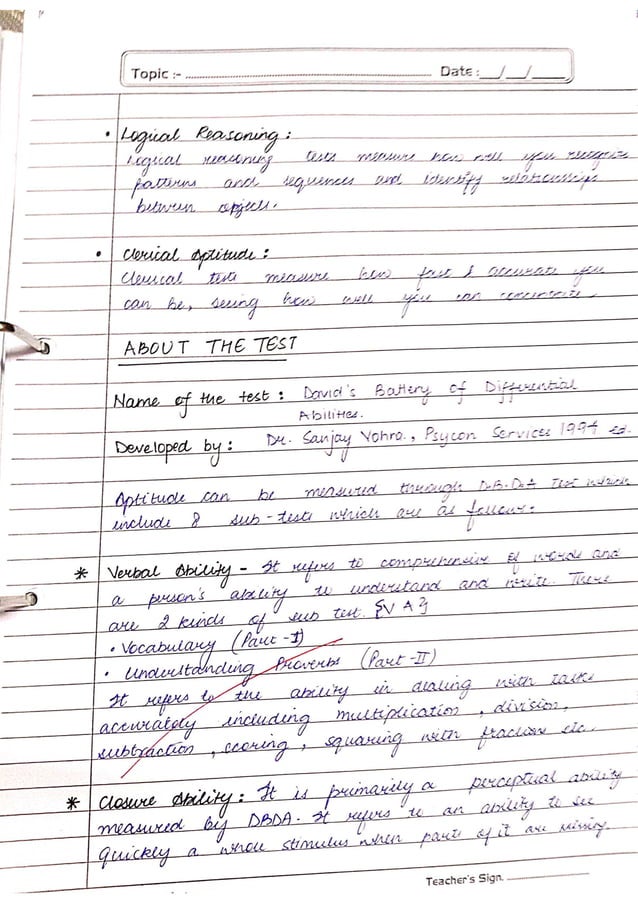 Topic :- Date :__/__/____
• Logical Reasoning :
Logical reasoning tests measure how well you recognize
patterns and sequences and identify relationships
between objects.
• Clerical Aptitude :
Clerical tests measure how fast & accurate you
can be, seeing how well you can concentrate.
ABOUT THE TEST
Name of the test : David's Battery of Differential
Abilities.
Developed by : Dr. Sanjay Vohra., Psycon Services 1994 ed.
Aptitude can be measured through D.B.D.A Test which
include 8 sub-tests which are as follow:
* Verbal Ability - It refers to comprehensive of words and
a person's ability to understand and write. There
are 2 kinds of sub test. {V A}
• Vocabulary (Part-I)
• Understanding Proverbs (Part-II)
It refers to the ability in dealing with tasks
accurately including multiplication, division,
subtraction, scoring, squaring with fraction etc.
* Closure Ability : It is primarily a perceptual ability
measured by DBDA. It refers to an ability to see
Quickly a whole stimulus when parts of it are missing.
Teacher's Sign.